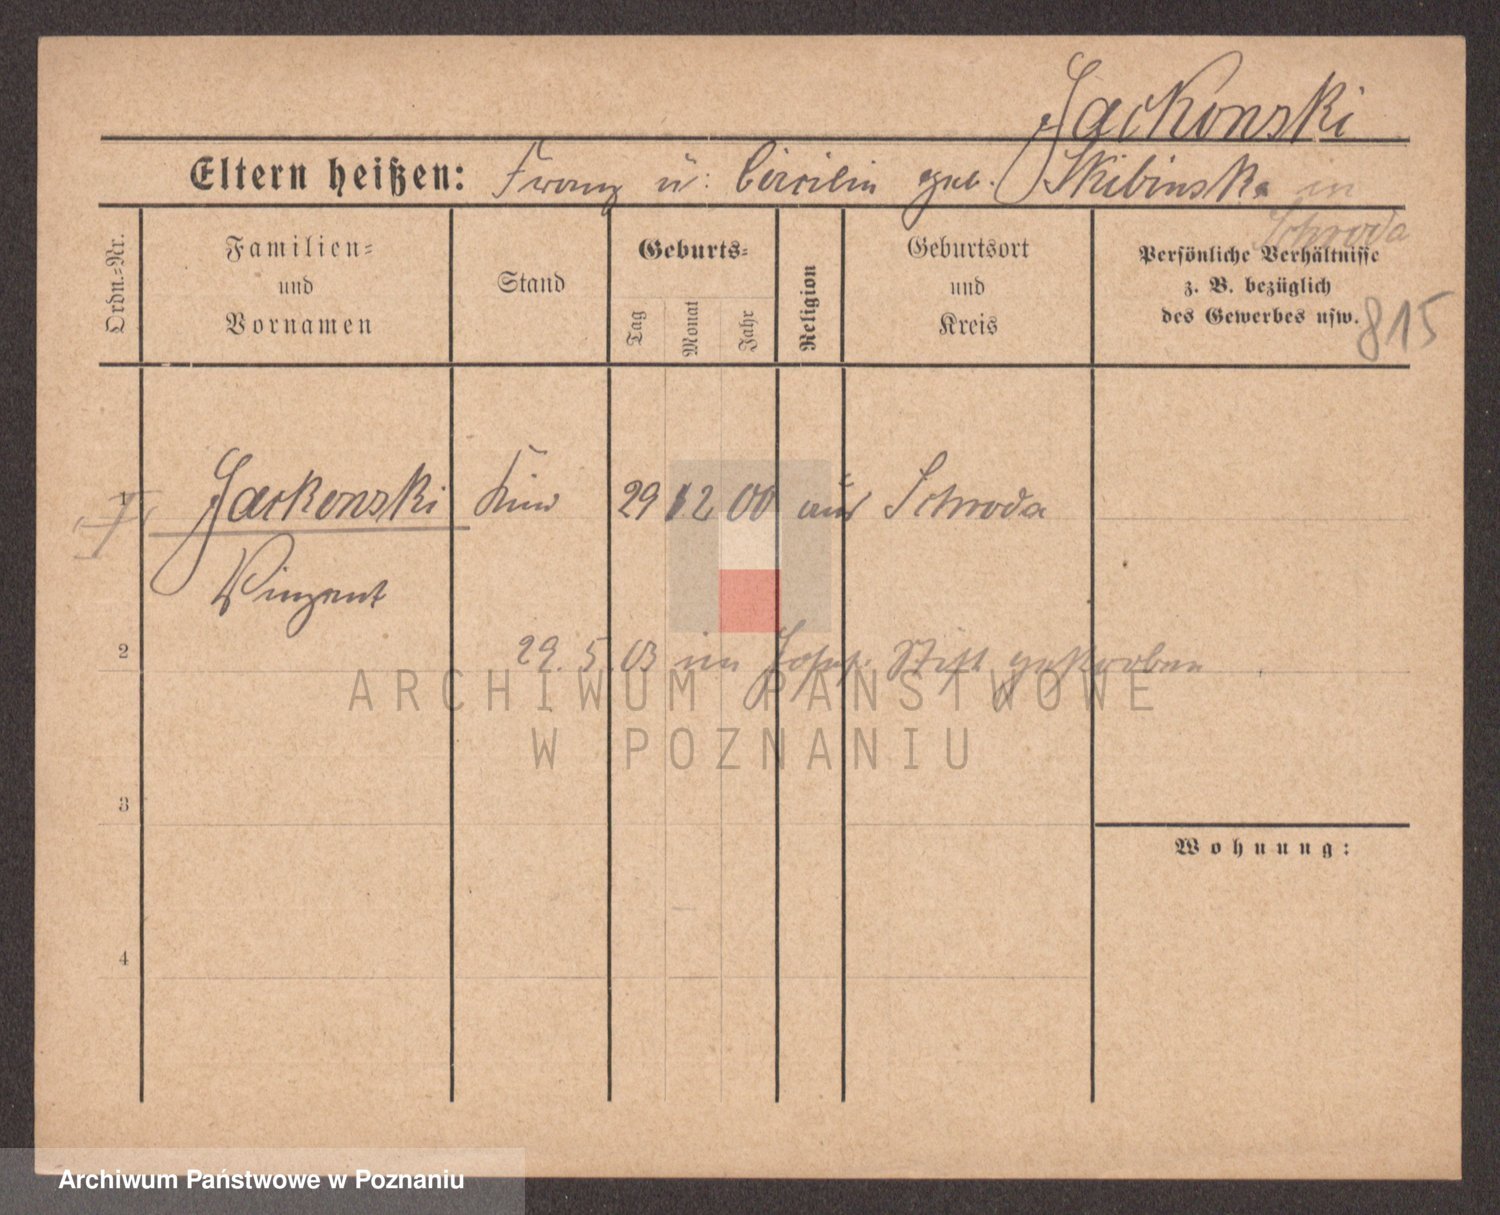 Jackonski
Eltern heißen: Franz u: Cäcilia geb. Skibinska in
Schroda
Ordn.=Nr.
Familien=
und
Vornamen
Stand
Geburts=
Tag
Monat
Jahr
Religion
Geburtsort
und
Kreis
Persönliche Verhältnisse
z. B. bezüglich
des Gewerbes usw.
815
1 Jackonski Kind 29 12 00 aus Schroda
Vinzent
2
29. 5. 03 im Josef. Stift gestorben
ARCHIWUM PAŃSTWOWE
W POZNANIU
3
Wohnung:
4
Archiwum Państwowe w Poznaniu